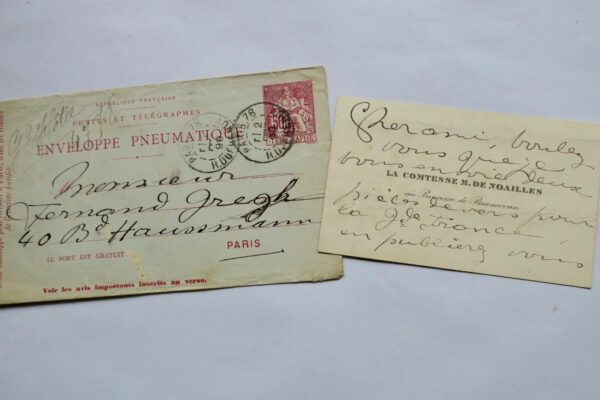 RÉPUBLIQUE FRANÇAISE
POSTES ET TÉLÉGRAPHES
ENVELOPPE PNEUMATIQUE
PARIS 78
Monsieur
Fernand Gregh
40 Bd Haussmann
PARIS
LE PORT EST GRATUIT
Voir les avis importants inscrits au verso.
Cher ami, voulez
vous que je
vous envoie deux
LA COMTESSE M. DE NOAILLES
née Princesse de Brancovan
pièces de vers pour
la Gde France
en publierez vous